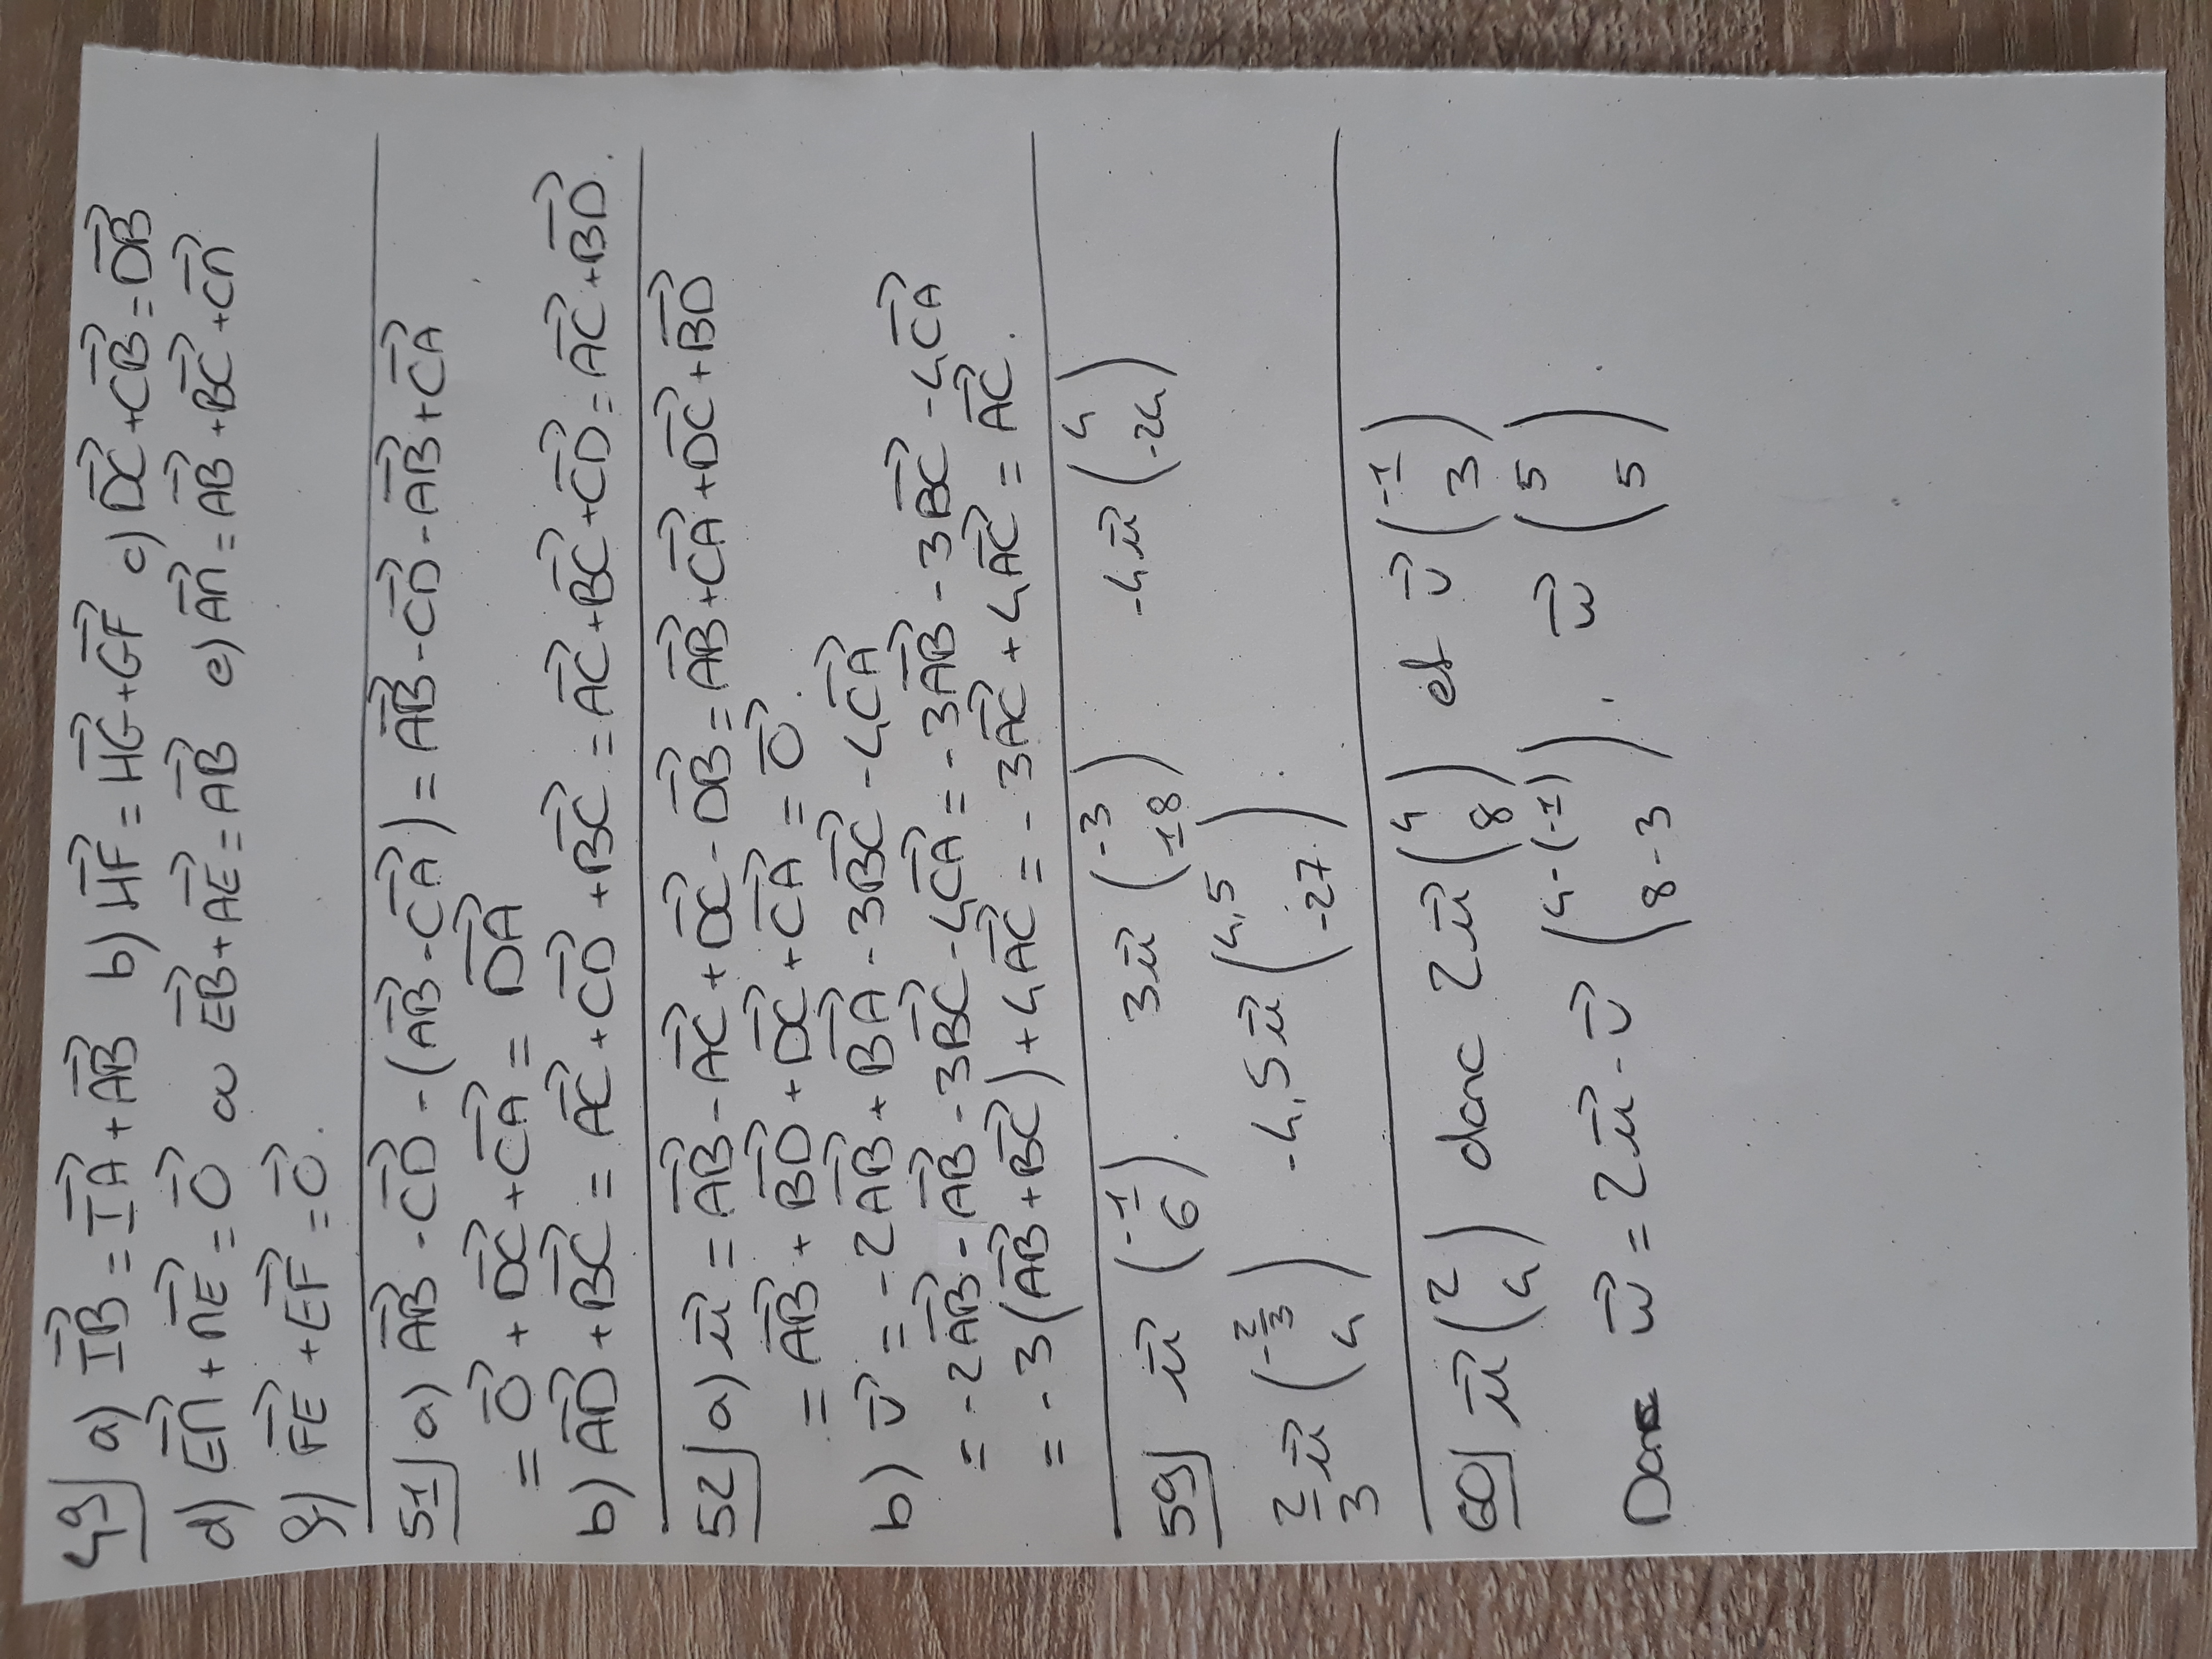 49) a) $\overrightarrow{IB} = \overrightarrow{IA} + \overrightarrow{AB}$ b) $\overrightarrow{HF} = \overrightarrow{HG} + \overrightarrow{GF}$ c) $\overrightarrow{DC} + \overrightarrow{CB} = \overrightarrow{DB}$
d) $\overrightarrow{EM} + \overrightarrow{ME} = \vec{0}$ ou $\overrightarrow{EB} + \overrightarrow{AE} = \overrightarrow{AB}$ e) $\overrightarrow{AM} = \overrightarrow{AB} + \overrightarrow{BC} + \overrightarrow{CM}$
f) $\overrightarrow{FE} + \overrightarrow{EF} = \vec{0}$.
51) a) $\overrightarrow{AB} - \overrightarrow{CD} - (\overrightarrow{AB} - \overrightarrow{CA}) = \overrightarrow{AB} - \overrightarrow{CD} - \overrightarrow{AB} + \overrightarrow{CA}$
$= \vec{0} + \overrightarrow{DC} + \overrightarrow{CA} = \overrightarrow{DA}$
b) $\overrightarrow{AD} + \overrightarrow{BC} = \overrightarrow{AC} + \overrightarrow{CD} + \overrightarrow{BC} = \overrightarrow{AC} + \overrightarrow{BC} + \overrightarrow{CD} = \overrightarrow{AC} + \overrightarrow{BD}$.
52) a) $\vec{u} = \overrightarrow{AB} - \overrightarrow{AC} + \overrightarrow{DC} - \overrightarrow{DB} = \overrightarrow{AB} + \overrightarrow{CA} + \overrightarrow{DC} + \overrightarrow{BD}$
$= \overrightarrow{AB} + \overrightarrow{BD} + \overrightarrow{DC} + \overrightarrow{CA} = \vec{0}$.
b) $\vec{v} = -2\overrightarrow{AB} + \overrightarrow{BA} - 3\overrightarrow{BC} - 4\overrightarrow{CA}$
$= -2\overrightarrow{AB} - \overrightarrow{AB} - 3\overrightarrow{BC} - 4\overrightarrow{CA} = -3\overrightarrow{AB} - 3\overrightarrow{BC} - 4\overrightarrow{CA}$
$= -3(\overrightarrow{AB} + \overrightarrow{BC}) + 4\overrightarrow{AC} = -3\overrightarrow{AC} + 4\overrightarrow{AC} = \overrightarrow{AC}$.
59) $\vec{u} \begin{pmatrix} -1 \\ 6 \end{pmatrix}$. $3\vec{u} \begin{pmatrix} -3 \\ 18 \end{pmatrix}$ $-4\vec{u} \begin{pmatrix} 4 \\ -24 \end{pmatrix}$
$\frac{2}{3}\vec{u} \begin{pmatrix} -\frac{2}{3} \\ 4 \end{pmatrix}$ $-4,5\vec{u} \begin{pmatrix} 4,5 \\ -27 \end{pmatrix}$.
60) $\vec{u} \begin{pmatrix} 2 \\ 4 \end{pmatrix}$ donc $2\vec{u} \begin{pmatrix} 4 \\ 8 \end{pmatrix}$ et $\vec{v} \begin{pmatrix} -1 \\ 3 \end{pmatrix}$
Donc $\vec{w} = 2\vec{u} - \vec{v} \begin{pmatrix} 4-(-1) \\ 8-3 \end{pmatrix}$. $\vec{w} \begin{pmatrix} 5 \\ 5 \end{pmatrix}$.